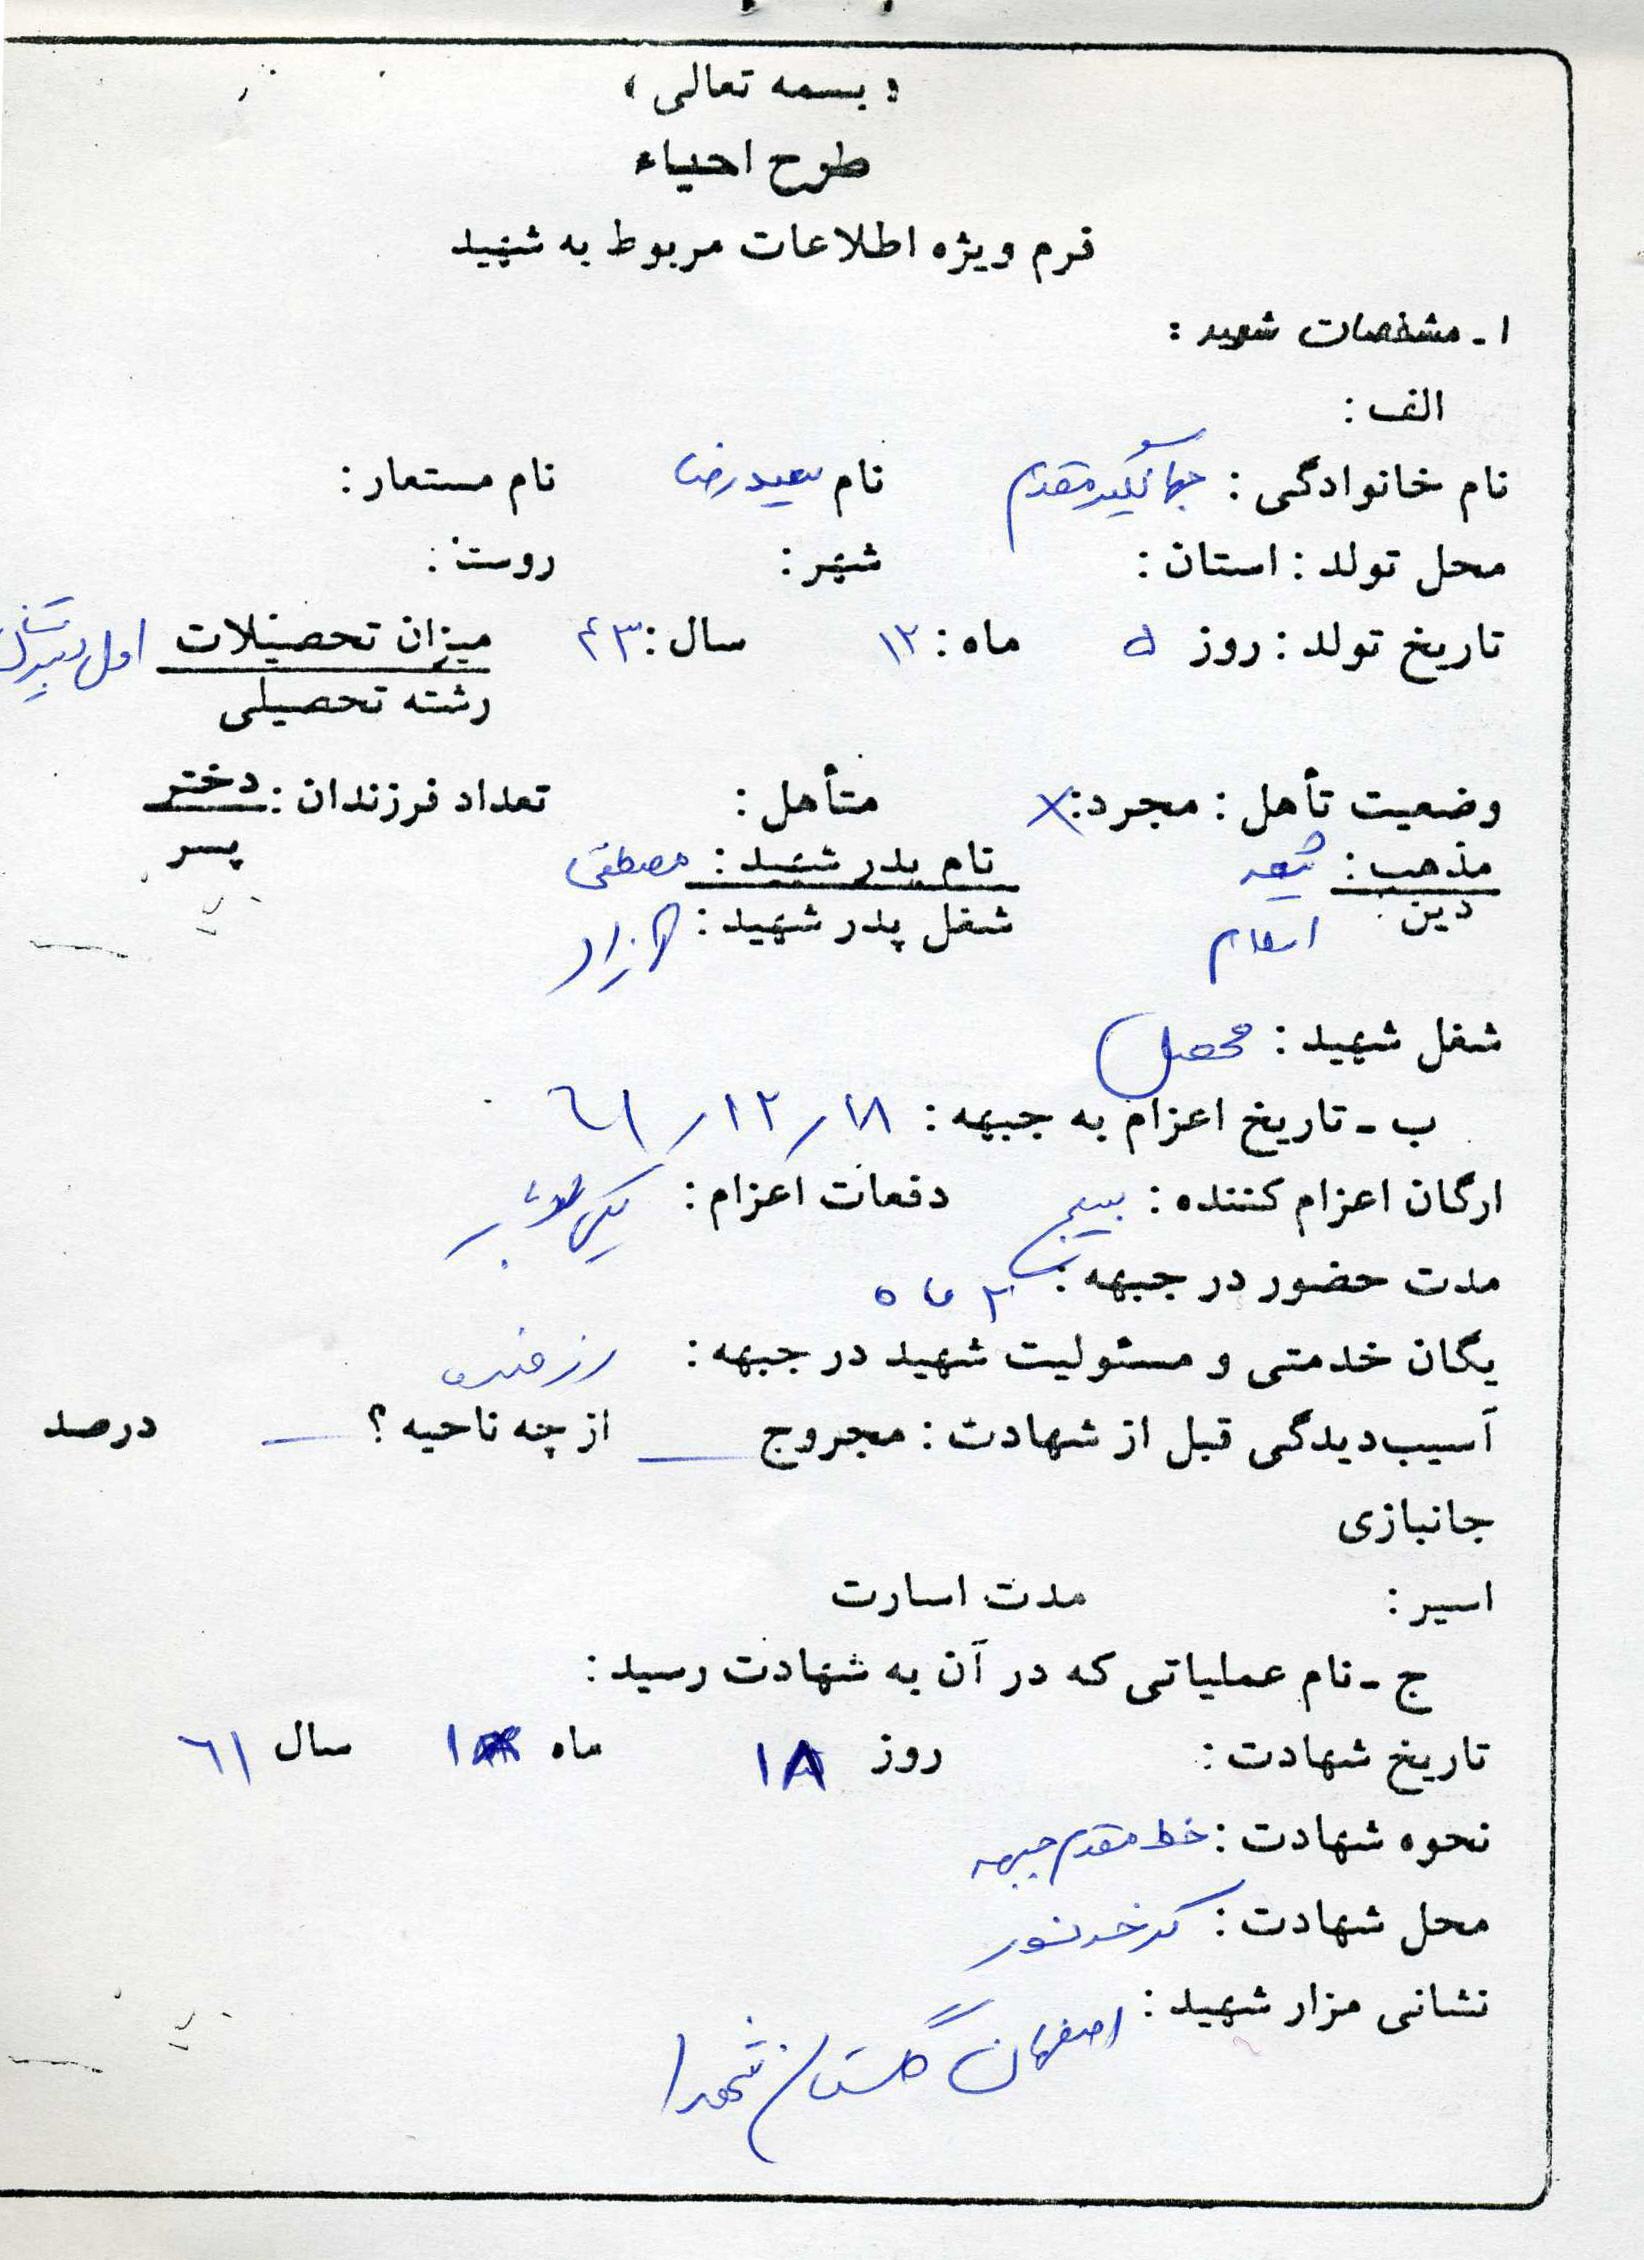 « بسمه تعالی »
طرح احیاء
فرم ویژه اطلاعات مربوط به شهید
۱ـ مشخصات شهید :
الف :
نام خانوادگی : جهانگیر مقدم نام سعیدرضا نام مستعار :
محل تولد : استان : شهر : روستا :
تاریخ تولد : روز ۵ ماه : ۱۲ سال : ۴۳ میزان تحصیلات اول دبیرستان
رشته تحصیلی
وضعیت تأهل : مجرد : × متأهل : تعداد فرزندان : دختر
پسر
مذهب : شیعه نام پدر شهید : مصطفی
دین : اسلام شغل پدر شهید : آزاد
شغل شهید : محصل
ب ـ تاریخ اعزام به جبهه : ۶۱/۱۲/۱۸
ارگان اعزام کننده : بسیج دفعات اعزام : یک
مدت حضور در جبهه : ۲ ماه
یگان خدمتی و مسئولیت شهید در جبهه : رزمنده
آسیب‌دیدگی قبل از شهادت : مجروح — از چه ناحیه ؟ — درصد
جانبازی
اسیر : مدت اسارت
ج ـ نام عملیاتی که در آن به شهادت رسید :
تاریخ شهادت : روز ۱۸ ماه سال ۶۱
نحوه شهادت : خط مقدم جبهه
محل شهادت : کرخه نور
نشانی مزار شهید : اصفهان گلستان شهدا